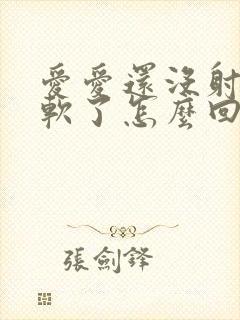 愛愛還沒射
軟了怎麼回
張劍鋒